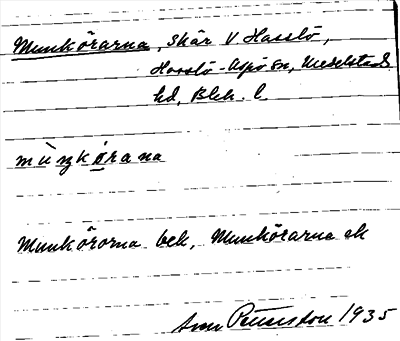 Munkörarna, skär V Hasslö,
Hasslö-Aspö sn, Medelstads
hd, Blek. l.
mùŋkörana
Munkörorna bek, Munkörarna ek
Sven Petersson 1935